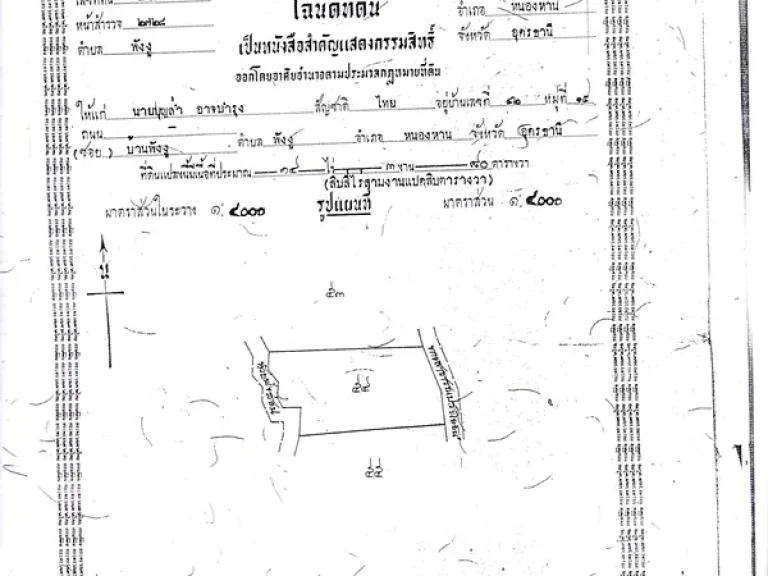 โฉนดที่ดิน
อำเภอ หนองหาน
หน้าสำรวจ ๒๗๒๘
ตำบล พังงู
เป็นหนังสือสำคัญแสดงกรรมสิทธิ์
จังหวัด อุดรธานี
ออกโดยอาศัยอำนาจตามประมวลกฎหมายที่ดิน
ให้แก่ นายบุญล้ำ อาจบำรุง สัญชาติ ไทย อยู่บ้านเลขที่ ๑๒ หมู่ที่ ๑๕
ถนน
(ซอย) บ้านพังงู ตำบล พังงู อำเภอ หนองหาน จังหวัด อุดรธานี
ที่ดินแปลงนี้มีเนื้อที่ประมาณ ๑๔ ไร่ ๓ งาน ๘๐ ตารางวา
(สิบสี่ไร่สามงานแปดสิบตารางวา)
มาตราส่วนในระวาง ๑: ๔๐๐๐ รูปแผนที่ มาตราส่วน ๑: ๔๐๐๐
น
๕๓
๕๔
ทางสาธารณประโยชน์
๕๕